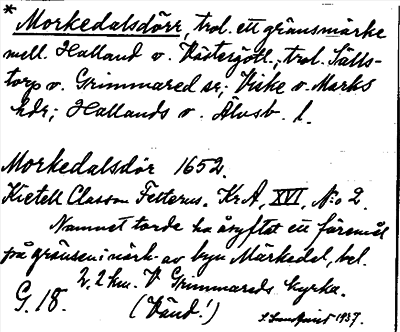 * Morkedalsdörr, trol. ett gränsmärke
mell. Halland o. Västergötl., trol. Sälls-
torp o. Grimmared sr; Viske o. Marks
hdr; Hallands o. Älvsb. l.
Morkedalsdör 1652.
Kietell Classon Felterus. KrA, XVI, No 2.
Namnet torde ha åsyftat ett föremål
på gränsen i närh. av byn Märkedal, bel.
2,2 km. V Grimmareds kyrka.
G. 18. (Vänd!) 1937.